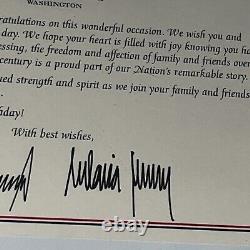 WASHINGTON
ratulations on this wonderful occasion. We wish you and
day. We hope your heart is filled with joy knowing you ha
essing, the freedom and affection of family and friends over
century is a proud part of our Nation's remarkable story.
ued strength and spirit as we join your family and friends
thday!
With best wishes,